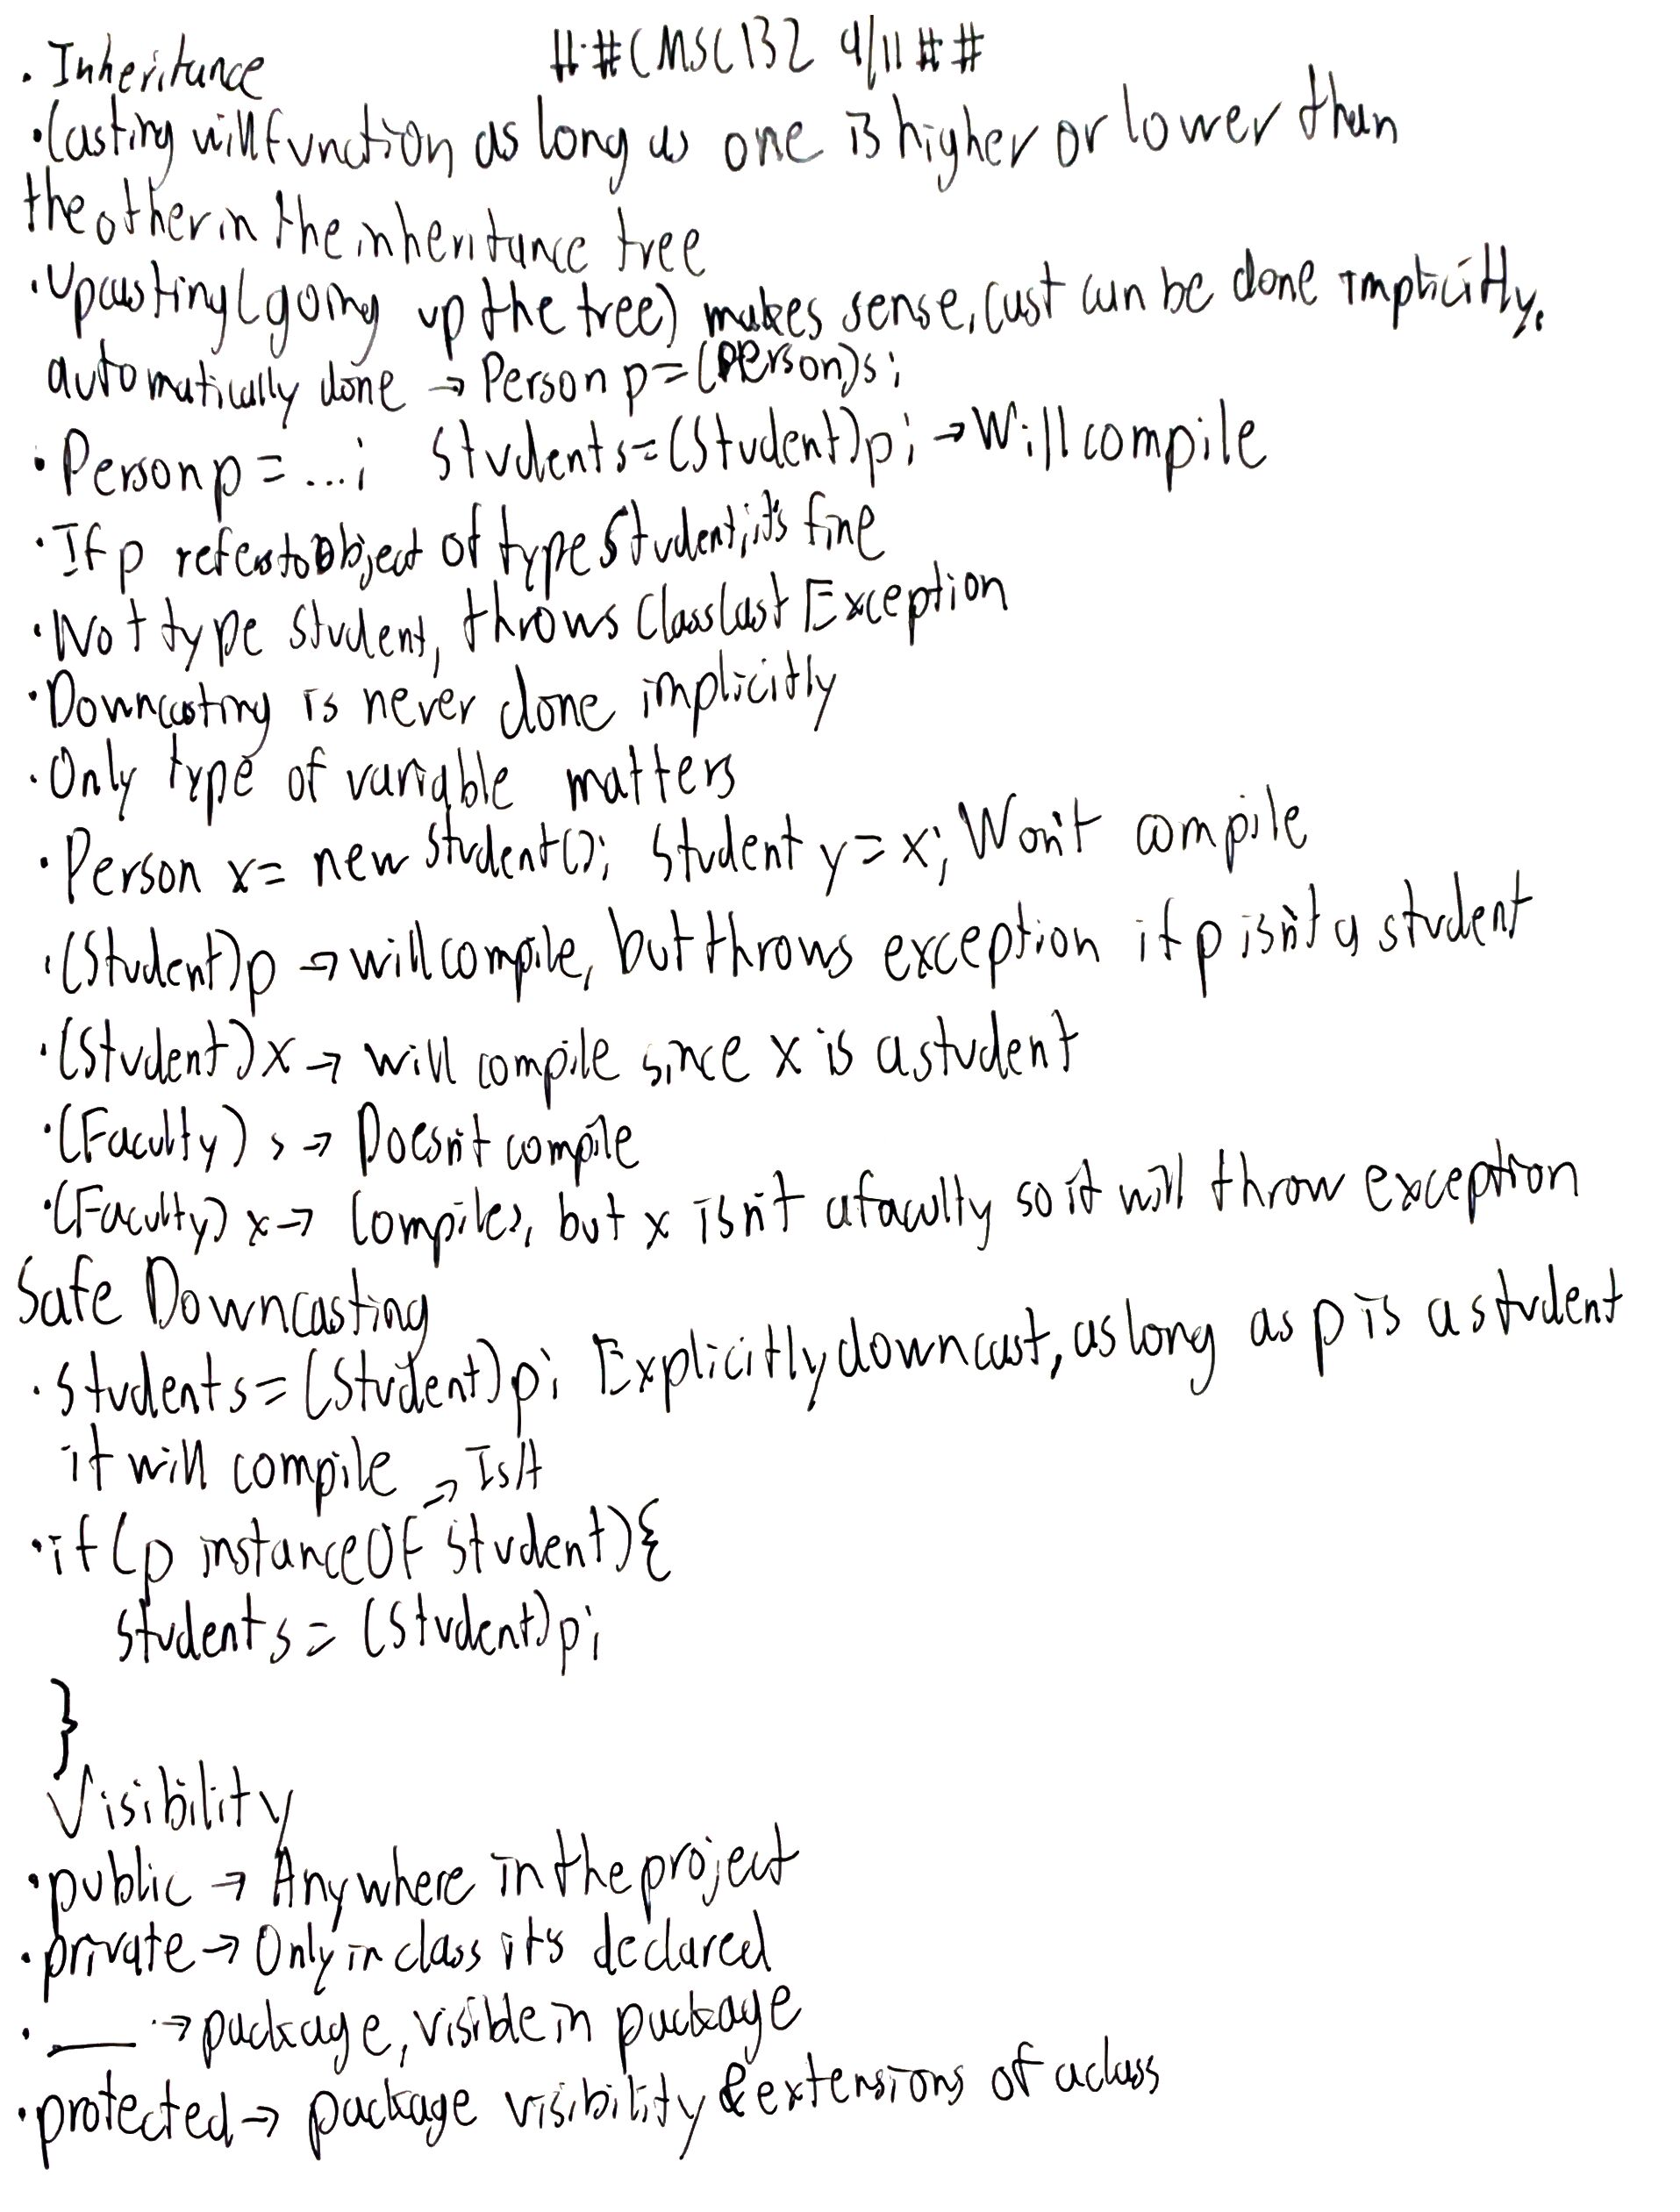 · Inheritance ##CMSC132 9/11##
· Casting will function as long as one is higher or lower than
the other in the inheritance tree
· Upcasting (going up the tree) makes sense, cast can be done implicitly.
automatically done → Person p = (Person)s;
· Person p = ...; Student s = (Student)p; → Will compile
· If p refers to object of type Student, it's fine
· Not type student, throws ClassCastException
· Downcasting is never done implicitly
· Only type of variable matters
· Person x = new Student(); Student y = x; Won't compile
· (Student)p → will compile, but throws exception if p isn't a student
· (Student)x → will compile since x is a student
· (Faculty) s → Doesn't compile
· (Faculty) x → Compiles, but x isn't a faculty so it will throw exception
Safe Downcasting
· Student s = (Student)p; Explicitly downcast, as long as p is a student
it will compile → IsA
· if (p instanceOf Student){
Student s = (Student)p;
}
Visibility
· public → Anywhere in the project
· private → Only in class it's declared
· ___ → package, visible in package
· protected → package visibility & extensions of a class